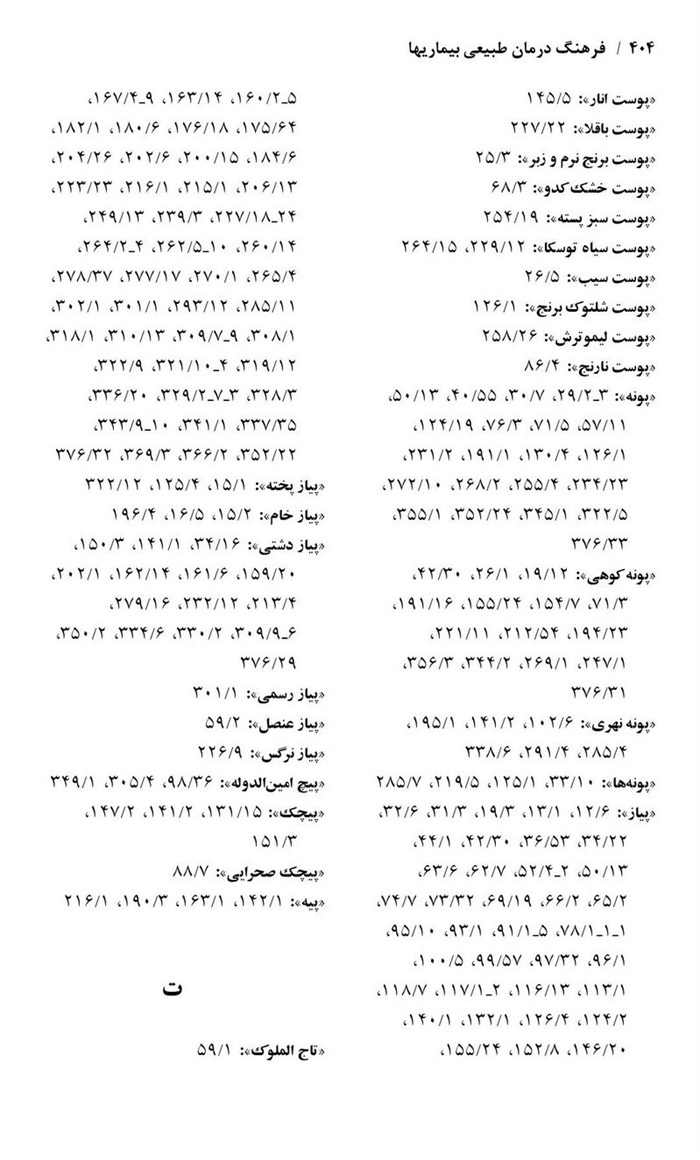 ۴۰۴ / فرهنگ درمان طبیعی بیماریها
«پوست انار»: ۱۴۵/۵
«پوست باقلا»: ۲۲۷/۲۲
«پوست برنج نرم و زبر»: ۲۵/۳
«پوست خشک کدو»: ۶۸/۳
«پوست سبز پسته»: ۲۵۴/۱۹
«پوست سیاه توسکا»: ۲۲۹/۱۲، ۲۶۴/۱۵
«پوست سیب»: ۲۶/۵
«پوست شلتوک برنج»: ۱۲۶/۱
«پوست لیموترش»: ۲۵۸/۲۶
«پوست نارنج»: ۸۶/۴
«پونه»: ۳_۲۹/۲، ۳۰/۷، ۴۰/۵۵، ۵۰/۱۳،
۵۷/۱۱، ۷۱/۵، ۷۶/۳، ۱۲۴/۱۹،
۱۲۶/۱، ۱۳۰/۴، ۱۹۱/۱، ۲۳۱/۲،
۲۳۴/۲۳، ۲۵۵/۴، ۲۶۸/۲، ۲۷۲/۱۰،
۳۲۲/۵، ۳۴۵/۱، ۳۵۲/۲۴، ۳۵۵/۱،
۳۷۶/۳۳
«پونه کوهی»: ۱۹/۱۲، ۲۶/۱، ۴۲/۳۰،
۷۱/۳، ۱۵۴/۷، ۱۵۵/۲۴، ۱۹۱/۱۶،
۱۹۴/۲۳، ۲۱۲/۵۴، ۲۲۱/۱۱،
۲۴۷/۱، ۲۶۹/۱، ۳۴۴/۲، ۳۵۶/۳،
۳۷۶/۳۱
«پونه نهری»: ۱۰۲/۶، ۱۴۱/۲، ۱۹۵/۱،
۲۸۵/۴، ۲۹۱/۴، ۳۳۸/۶
«پونه‌ها»: ۳۳/۱۰، ۱۲۵/۱، ۲۱۹/۵، ۲۸۵/۷
«پیاز»: ۱۲/۶، ۱۳/۱، ۱۹/۳، ۳۱/۳، ۳۲/۶،
۳۴/۲۲، ۳۶/۵۳، ۴۲/۳۰، ۴۴/۱،
۵۰/۱۳، ۲_۵۲/۴، ۶۲/۷، ۶۳/۶،
۶۵/۲، ۶۶/۲، ۶۹/۱۹، ۷۳/۳۲، ۷۴/۷،
۱_۱_۷۸/۱، ۵_۹۱/۱، ۹۳/۱، ۹۵/۱۰،
۹۶/۱، ۹۷/۳۲، ۹۹/۵۷، ۱۰۰/۵،
۱۱۳/۱، ۱۱۶/۱۳، ۲_۱۱۷/۱، ۱۱۸/۷،
۱۲۴/۲، ۱۲۶/۴، ۱۳۲/۱، ۱۴۰/۱،
۱۴۶/۲۰، ۱۵۲/۸، ۱۵۵/۲۴،
۵_۱۶۰/۲، ۱۶۳/۱۴، ۹_۱۶۷/۴،
۱۷۵/۶۴، ۱۷۶/۱۸، ۱۸۰/۶، ۱۸۲/۱،
۱۸۴/۶، ۲۰۰/۱۵، ۲۰۲/۶، ۲۰۴/۲۶،
۲۰۶/۱۳، ۲۱۵/۱، ۲۱۶/۱، ۲۲۳/۲۳،
۲۴_۲۲۷/۱۸، ۲۳۹/۳، ۲۴۹/۱۳،
۲۶۰/۱۴، ۱۰_۲۶۲/۵، ۴_۲۶۴/۲،
۲۶۵/۴، ۲۷۰/۱، ۲۷۷/۱۷، ۲۷۸/۳۷،
۲۸۵/۱۱، ۲۹۳/۱۲، ۳۰۱/۱، ۳۰۲/۱،
۳۰۸/۱، ۹_۳۰۹/۷، ۳۱۰/۱۳، ۳۱۸/۱،
۳۱۹/۱۲، ۴_۳۲۱/۱۰، ۳۲۲/۹،
۳۲۸/۳، ۷_۳_۳۲۹/۲، ۳۳۶/۲۰،
۳۳۷/۳۵، ۳۴۱/۱، ۱۰_۳۴۳/۹،
۳۵۲/۲۲، ۳۶۶/۲، ۳۶۹/۳، ۳۷۶/۳۲
«پیاز پخته»: ۱۵/۱، ۱۲۵/۴، ۳۲۲/۱۲
«پیاز خام»: ۱۵/۲، ۱۶/۵، ۱۹۶/۴
«پیاز دشتی»: ۳۴/۱۶، ۱۴۱/۱، ۱۵۰/۳،
۱۵۹/۲۰، ۱۶۱/۶، ۱۶۲/۱۴، ۲۰۲/۱،
۲۱۳/۴، ۲۳۲/۱۲، ۲۷۹/۱۶،
۶_۳۰۹/۹، ۳۳۰/۲، ۳۳۴/۶، ۳۵۰/۲،
۳۷۶/۲۹
«پیاز رسمی»: ۳۰۱/۱
«پیاز عنصل»: ۵۹/۲
«پیاز نرگس»: ۲۲۶/۹
«پیچ امین‌الدوله»: ۹۸/۳۶، ۳۰۵/۴، ۳۴۹/۱
«پیچک»: ۱۳۱/۱۵، ۱۴۱/۲، ۱۴۷/۲،
۱۵۱/۳
«پیچک صحرایی»: ۸۸/۷
«پیه»: ۱۴۲/۱، ۱۶۳/۱، ۱۹۰/۳، ۲۱۶/۱
ت
«تاج الملوک»: ۵۹/۱